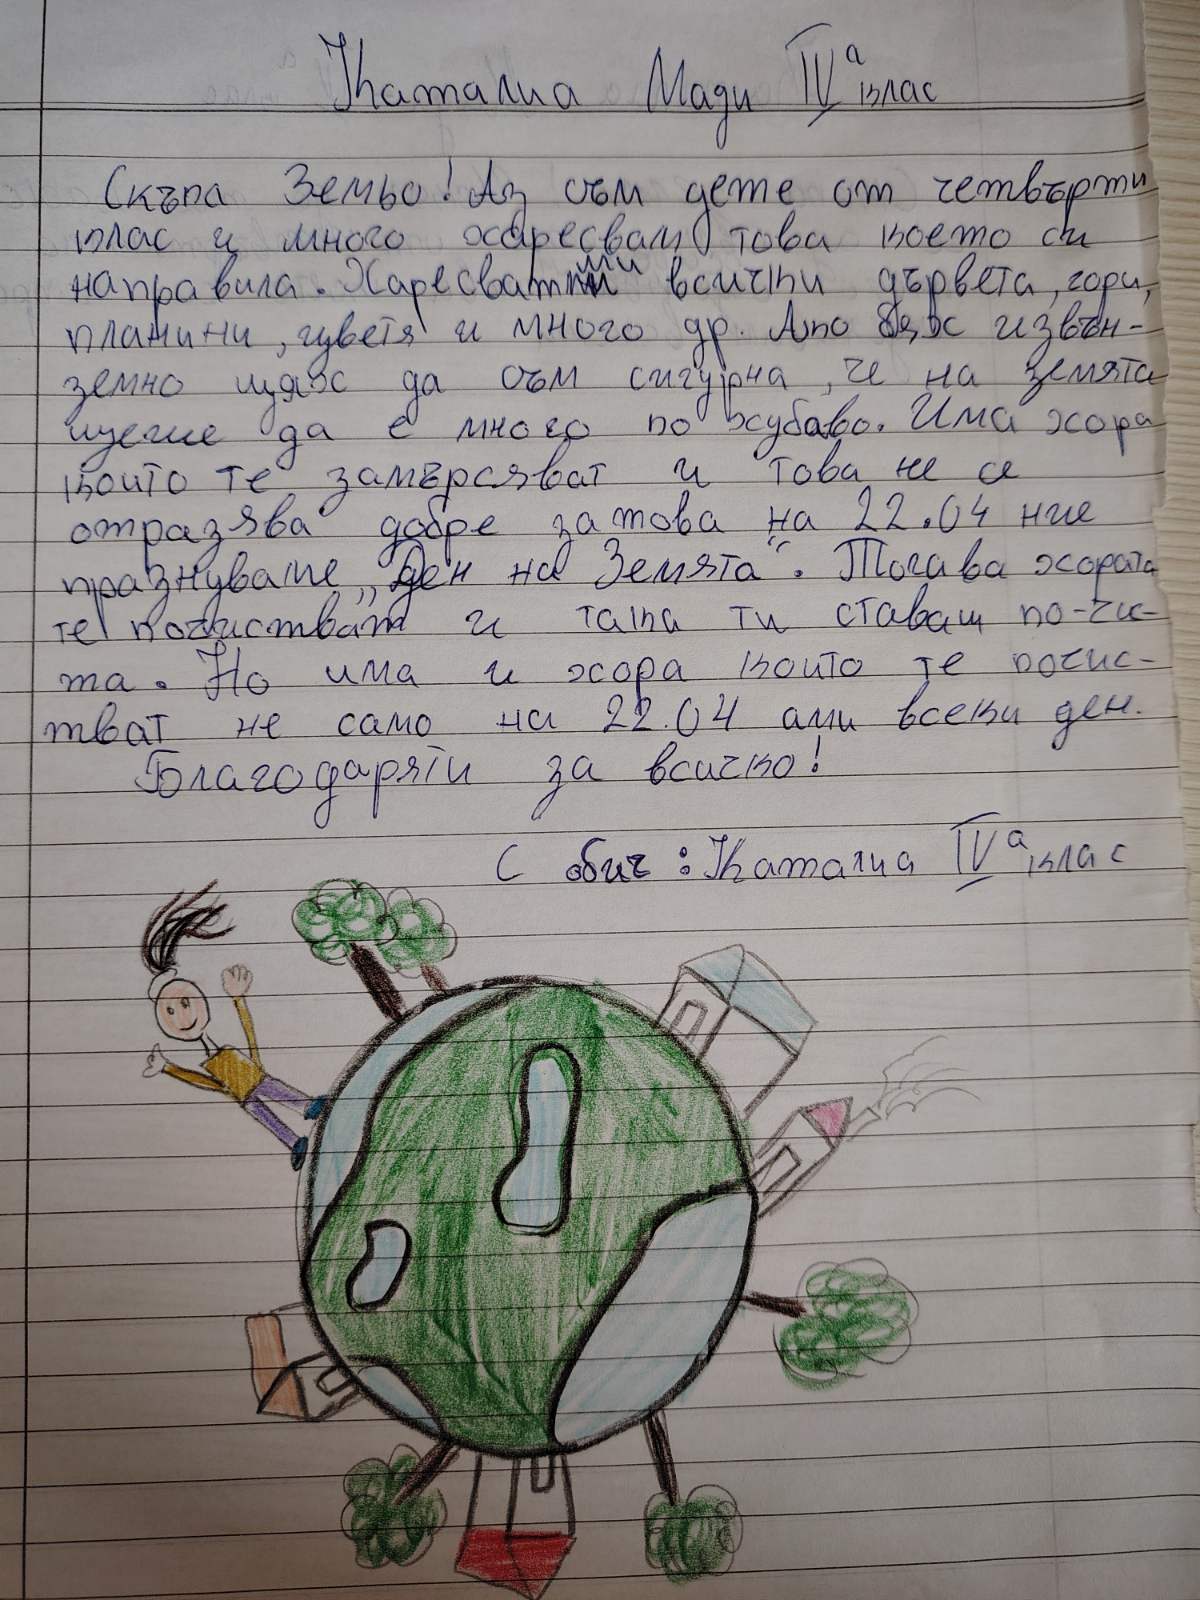 Каталиа Мади IVа клас
Скъпа Земьо! Аз съм дете от четвърти
клас и много харесвам това което си
направила. Харесват ми всички дървета, гори,
планини, цветя и много др. Ако бях извън-
земно щях да съм сигурна, че на земята
щеше да е много по хубаво. Има хора
които те замърсяват и това не се
отразява добре затова на 22.04 ние
празнуваме „Ден на Земята“. Тогава хората
те почистват и така ти ставаш по-чи-
та. Но има и хора които те почис-
тват не само на 22.04 ами всеки ден.
Благодаряти за всичко!
С обич: Каталиа IVа клас